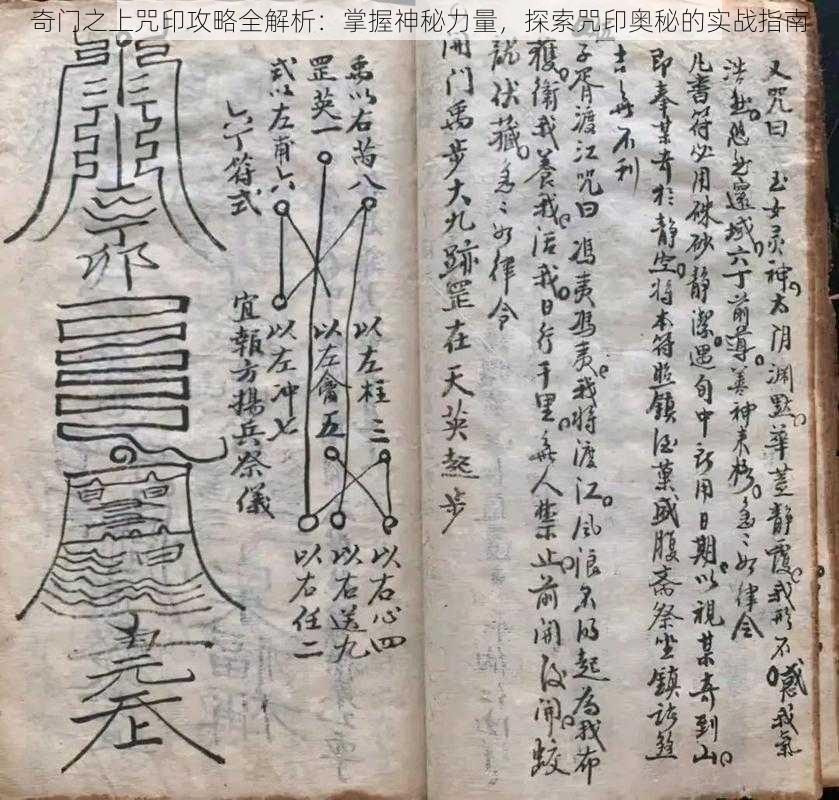 奇门之上咒印攻略全解析：掌握神秘力量，探索咒印奥秘的实战指南
又咒曰 玉女灵神太阴渊默華蓋静霞我形不感我氣
浩然忽然還城六丁前導善神来格急〻如律令
凡書符必用硃砂静潔遇旬中所用日期以視某奇到山
即奉某奇於静室将本符照鎮酒菓盛腹斋祭坐鎮诸煞
吉無不利
子胥渡江咒曰 馮夷馮夷我将渡江风浪不起為我布
獲衛我養我活我日行千里無人禁止前開後開蛟
龍伏藏急〻如律令
開门禹步大九跡罡在天英起步
禹以右萬八
罡英一
式以左甫六
六丁符式
以左柱三
以左會五
以左冲七
宜報方揚兵祭儀
以右心四
以右送九
以右任二
丁卯